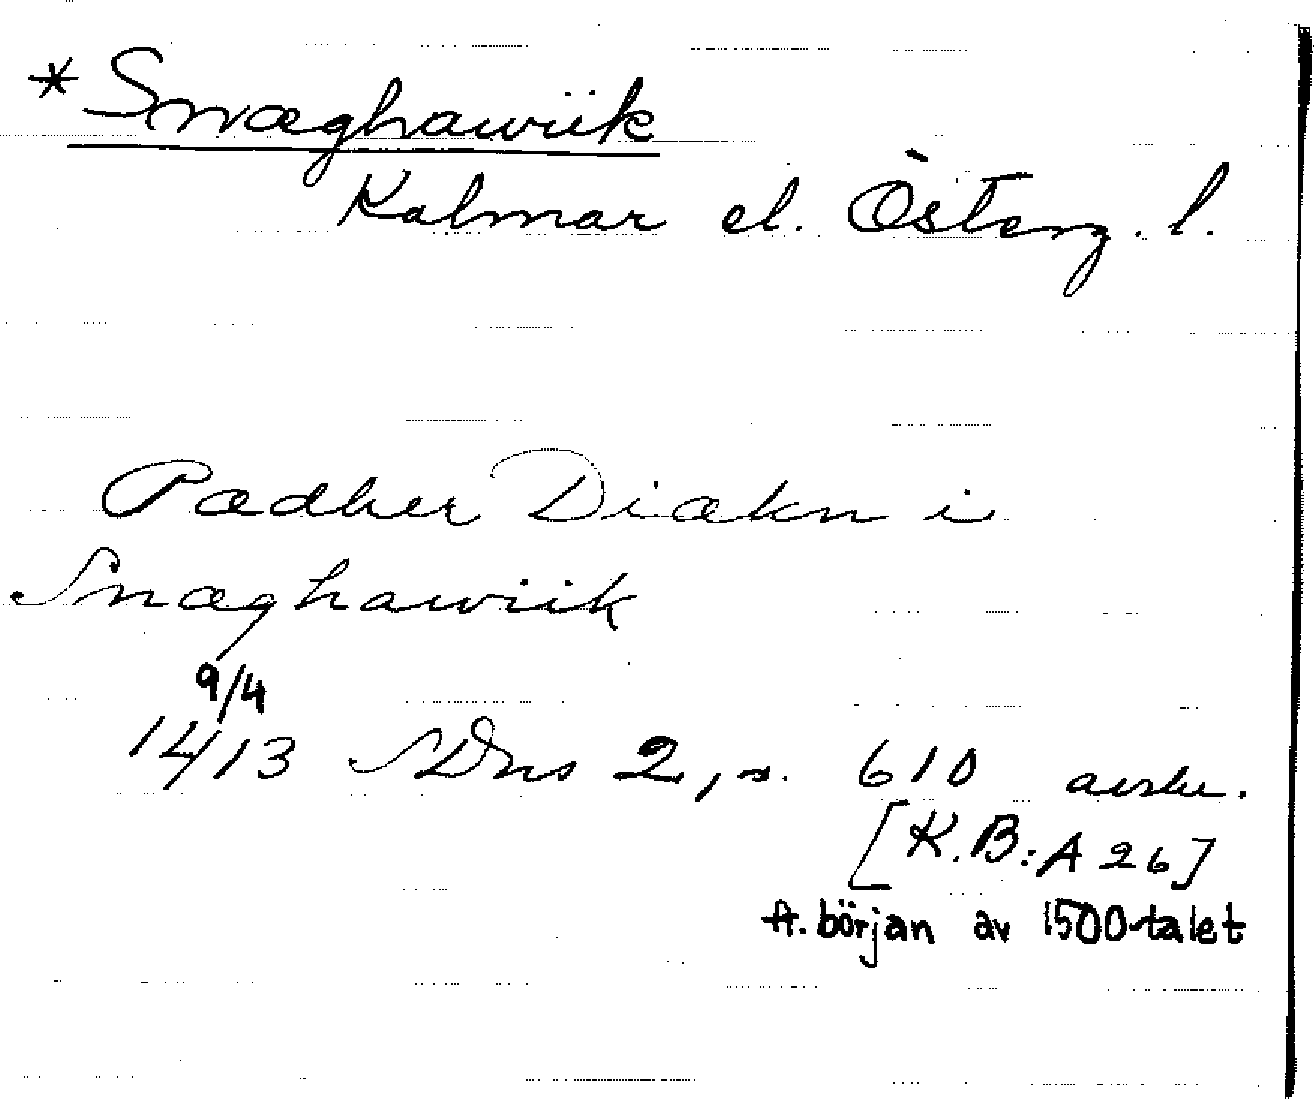 * Snæghawiik
Kalmar el. Österg. l.
Pædher Diækn i
Snæghawiik
9/4
1413 SDns 2, s. 610 avskr.
[K.B: A 26]
fr. början av 1500-talet